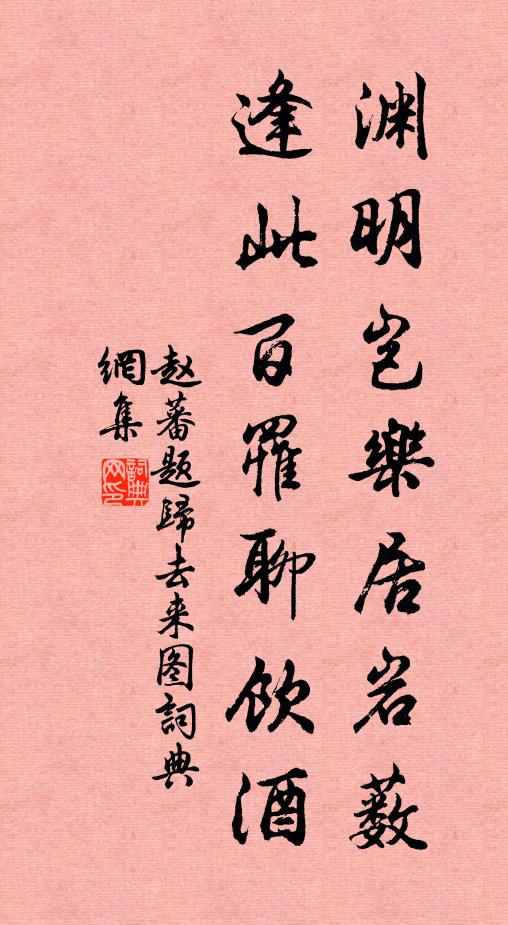 渊明岂樂居岩薮
逢此百罹聊飲酒
赵蕃题歸去来图詞典
網集
詞典网印